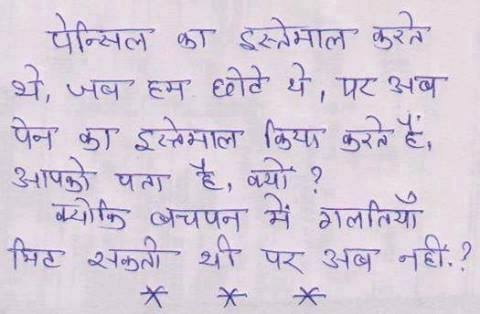 पेन्सिल का इस्तेमाल करते
थे, जब हम छोटे थे, पर अब
पेन का इस्तेमाल किया करते हैं,
आपको पता है, क्यों ?
क्योकि बचपन में गलतियाँ
मिट सकती थी पर अब नहीं.?
* * *